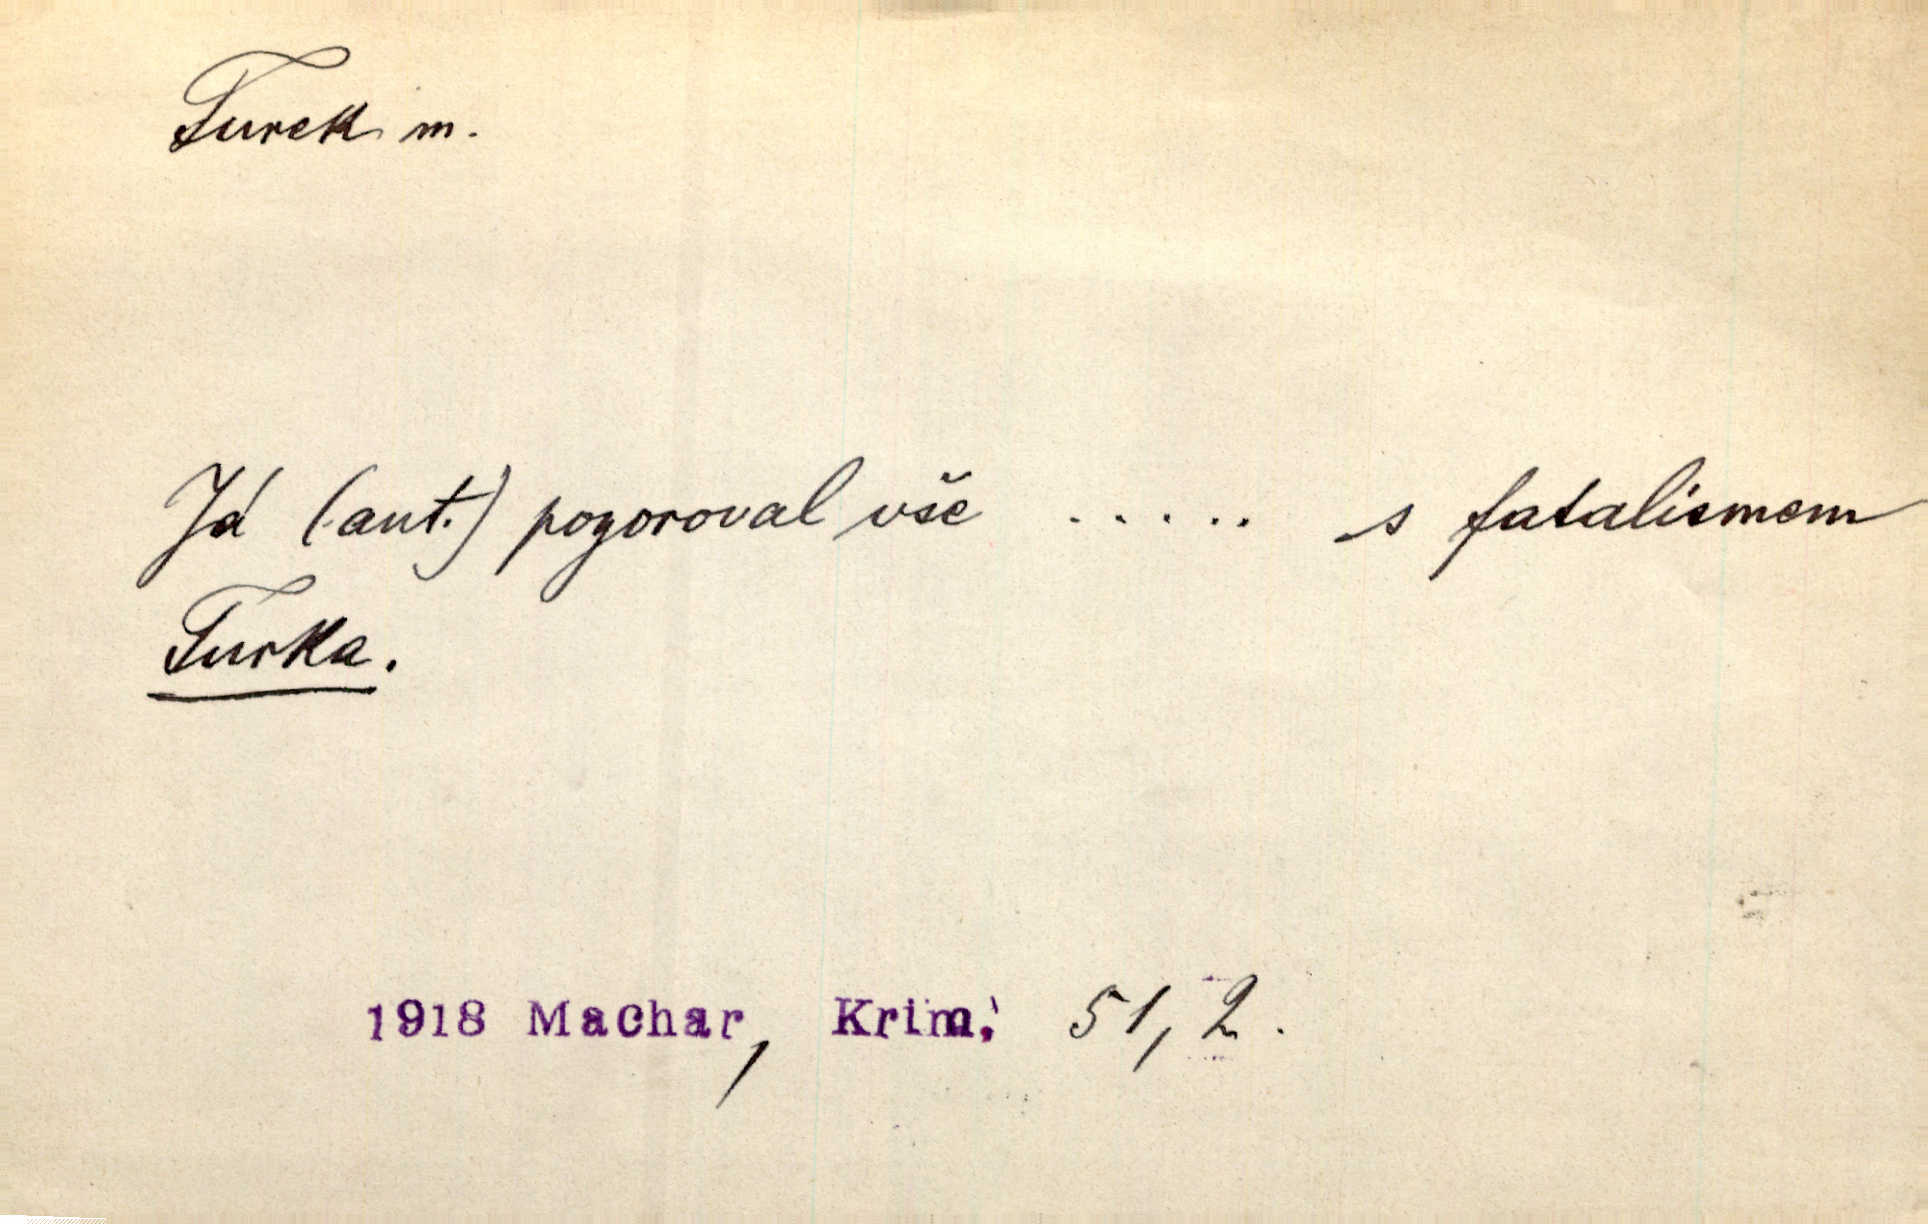 Turek m.
Já (aut.) pozoroval vše ..... s fatalismem
Turka.
1918 Machar, Krim. 51, 2.